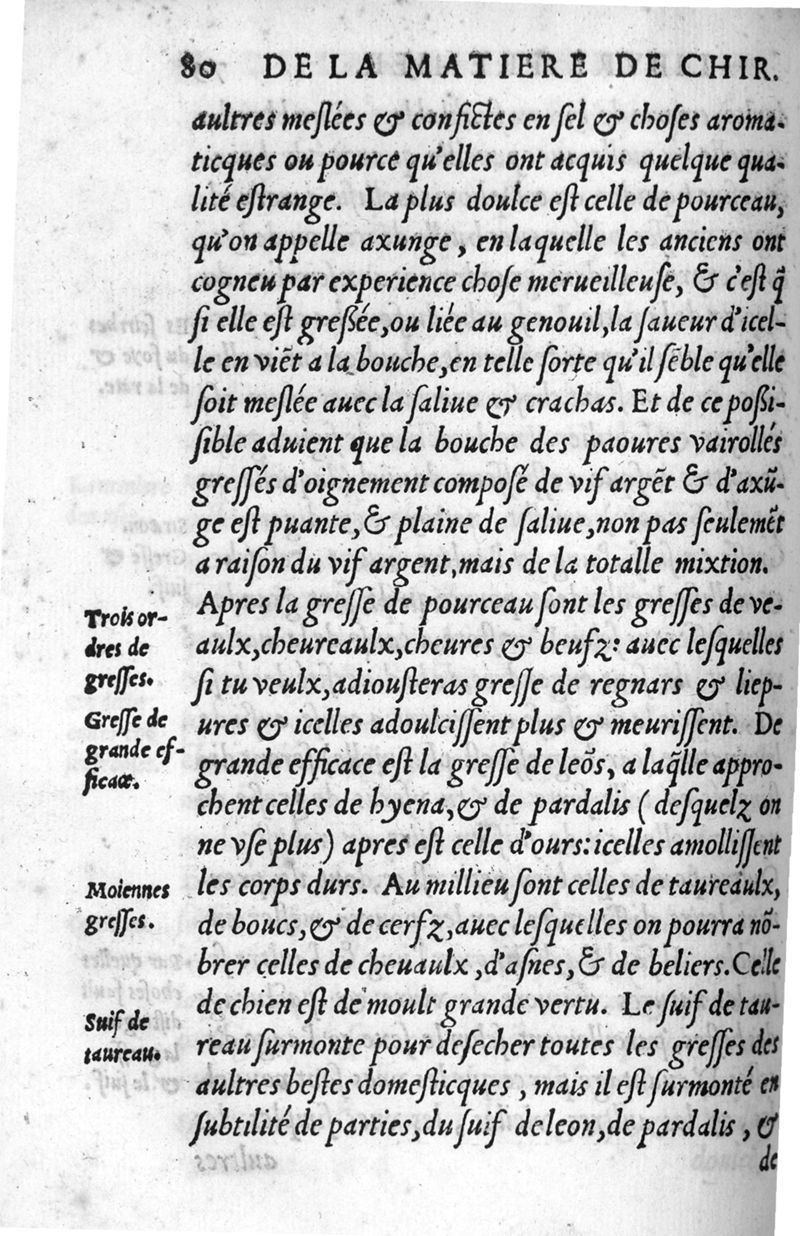 80 DE LA MATIERE DE CHIR.
aultres meſlées & confictes en ſel & choſes aroma-
ticques ou pource qu'elles ont acquis quelque qua-
lité eſtrange. La plus doulce eſt celle de pourceau,
qu'on appelle axunge, en laquelle les anciens ont
cogneu par experience choſe merueilleuſe, & c'eſt q̃
ſi elle eſt greßée, ou liée au genouil, la ſaueur d'icel-
le en viẽt a la bouche, en telle ſorte qu'il ſẽble qu'elle
ſoit meſlée auec la ſaliue & crachas. Et de ce poßi-
ſible aduient que la bouche des paoures vairollés
greſſés d'oignement compoſé de vif argẽt & d'axũ-
ge eſt puante, & plaine de ſaliue, non pas ſeulemẽt
a raiſon du vif argent, mais de la totalle mixtion.
Apres la greſſe de pourceau ſont les greſſes de ve-
aulx, cheureaulx, cheures & beufz: auec leſquelles
ſi tu veulx, adiouſteras greſſe de regnars & liep-
ures & icelles adoulciſſent plus & meuriſſent. De
grande efficace eſt la greſſe de leõs, a laq̃lle appro-
chent celles de hyena, & de pardalis (deſquelz on
ne vſe plus) apres eſt celle d'ours: icelles amolliſſent
les corps durs. Au millieu ſont celles de taureaulx,
de boucs, & de cerfz, auec leſquelles on pourra nõ-
brer celles de cheuaulx, d'aſnes, & de beliers. Celle
de chien eſt de moult grande vertu. Le ſuif de tau-
reau ſurmonte pour deſecher toutes les greſſes des
aultres beſtes domeſticques, mais il eſt ſurmonté en
ſubtilité de parties, du ſuif de leon, de pardalis, &
de
Trois or-
dres de
greſſes.
Greſſe de
grande ef-
ficace.
Moiennes
greſſes.
Suif de
taureau.